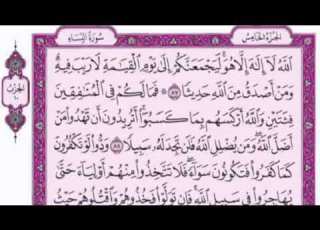 الجزء الخامس
سورة النساء
ٱللَّهُ لَآ إِلَٰهَ إِلَّا هُوَ لَيَجْمَعَنَّكُمْ إِلَىٰ يَوْمِ ٱلْقِيَٰمَةِ لَا رَيْبَ فِيهِ
وَمَنْ أَصْدَقُ مِنَ ٱللَّهِ حَدِيثًا ۝٨٧ فَمَا لَكُمْ فِى ٱلْمُنَٰفِقِينَ
فِئَتَيْنِ وَٱللَّهُ أَرْكَسَهُم بِمَا كَسَبُوٓا۟ أَتُرِيدُونَ أَن تَهْدُوا۟ مَنْ
أَضَلَّ ٱللَّهُ وَمَن يُضْلِلِ ٱللَّهُ فَلَن تَجِدَ لَهُۥ سَبِيلًا ۝٨٨ وَدُّوا۟ لَوْ تَكْفُرُونَ
كَمَا كَفَرُوا۟ فَتَكُونُونَ سَوَآءً فَلَا تَتَّخِذُوا۟ مِنْهُمْ أَوْلِيَآءَ حَتَّىٰ
يُهَاجِرُوا۟ فِى سَبِيلِ ٱللَّهِ فَإِن تَوَلَّوْا۟ فَخُذُوهُمْ وَٱقْتُلُوهُمْ حَيْثُ
الحزب